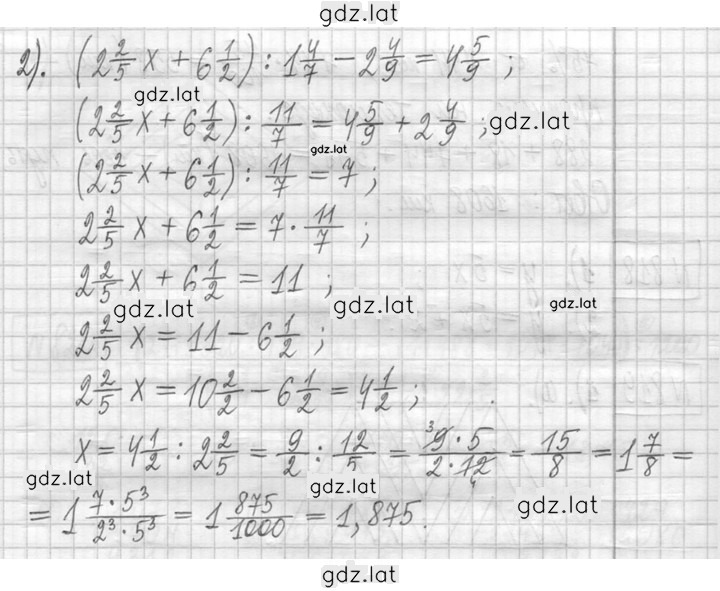 gdz.lat
2). (2 2/5 x + 6 1/2) : 1 4/7 − 2 4/9 = 4 5/9 ;
gdz.lat
(2 2/5 x + 6 1/2) : 11/7 = 4 5/9 + 2 4/9 ; gdz.lat
gdz.lat
(2 2/5 x + 6 1/2) : 11/7 = 7 ;
2 2/5 x + 6 1/2 = 7 · 11/7 ;
2 2/5 x + 6 1/2 = 11 ;
gdz.lat gdz.lat gdz.lat
2 2/5 x = 11 − 6 1/2 ;
2 2/5 x = 10 2/2 − 6 1/2 = 4 1/2 ;
x = 4 1/2 : 2 2/5 = 9/2 : 12/5 = ³9 · 5 / 2 · 12₄ = 15/8 = 1 7/8 =
gdz.lat gdz.lat gdz.lat
= 1 7 · 5³ / 2³ · 5³ = 1 875/1000 = 1,875.
gdz.lat